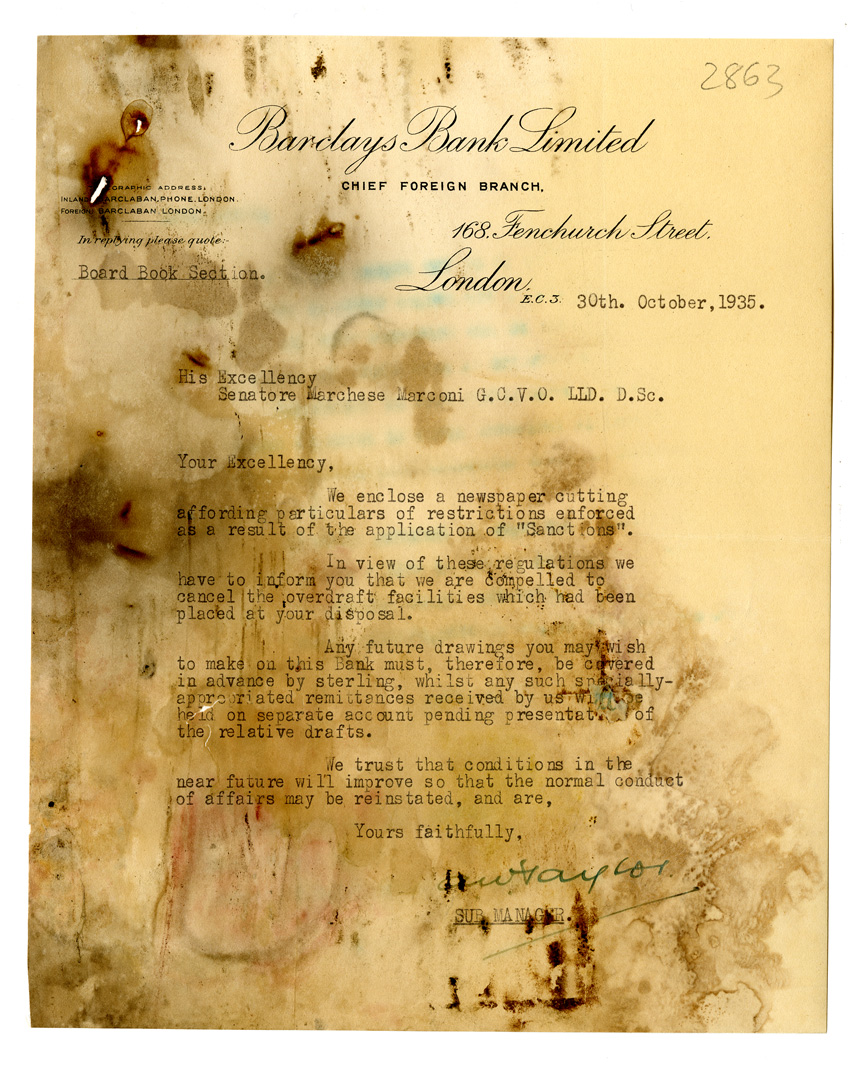 2863
Barclays Bank Limited
CHIEF FOREIGN BRANCH,
GRAPHIC ADDRESS:
INLAND BARCLABAN, PHONE, LONDON.
FOREIGN BARCLABAN LONDON.
168. Fenchurch Street,
In replying please quote:-
Board Book Section.
London,
E.C.3. 30th. October, 1935.
His Excellency
Senatore Marchese Marconi G.C.V.O. LLD. D.Sc.
Your Excellency,
We enclose a newspaper cutting
affording particulars of restrictions enforced
as a result of the application of "Sanctions".
In view of these regulations we
have to inform you that we are compelled to
cancel the overdraft facilities which had been
placed at your disposal.
Any future drawings you may wish
to make on this Bank must, therefore, be covered
in advance by sterling, whilst any such specially-
appropriated remittances received by us will be
held on separate account pending presentat of
the relative drafts.
We trust that conditions in the
near future will improve so that the normal conduct
of affairs may be reinstated, and are,
Yours faithfully,
Taylor
SUB MANAGER.